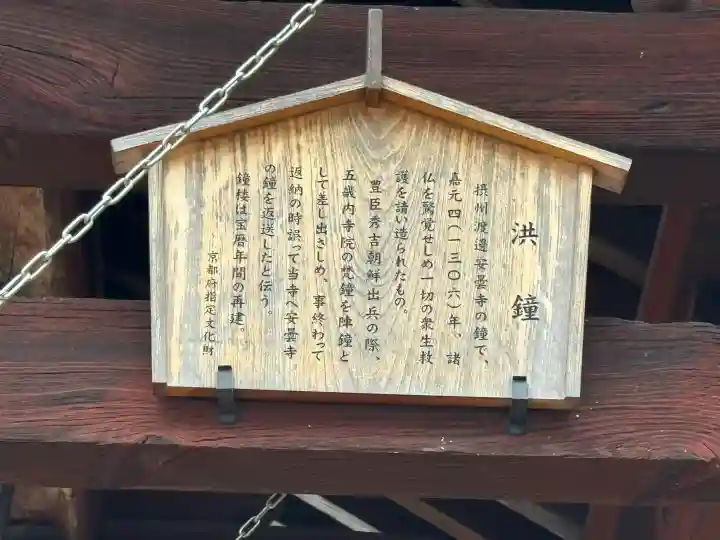 洪鐘
摂州渡邊安曇寺の鐘で、
嘉元四(一三〇六)年、諸
仏を驚覚せしめ一切の衆生救
護を請い造られたもの。
豊臣秀吉朝鮮出兵の際、
五畿内寺院の梵鐘を陣鐘と
して差し出さしめ、事終わって
返納の時誤って当寺へ安曇寺
の鐘を返送したと伝う。
鐘楼は宝暦年間の再建。
京都府指定文化財